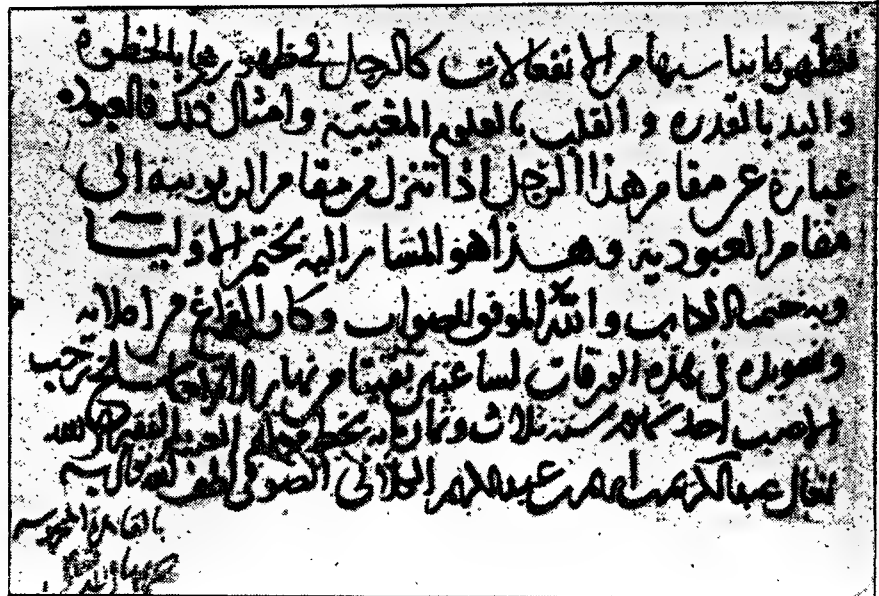 فتظهر بما يناسبها من الانفعالات كالرجل في ظهور رها بالخطوة
واليد بالقدرة والقلب بالعلوم المغيبة وأمثال ذلك فالعبودة
عبارة عن مقام هذا الرجل اذا تنزل من مقام الربوبية الى
مقام العبودية وهذا هو المشار اليه بختم الاوليا
وبه ختمنا الكتاب والله الموفق للصواب وكان الفراغ من املائه
وتسويده في هذه الورقات لساعتين بقيتا من نهار الاربعا سلخ رجب
الاصب احد شهور سنة ثلاث وثمانمائة بخط ممليه العبد الفقير الى الله
تعالى عبد الكريم بن ابرهيم بن عبد الكريم الكيلاني الصوفي لطف الله به
بالقاهرة المحروسة